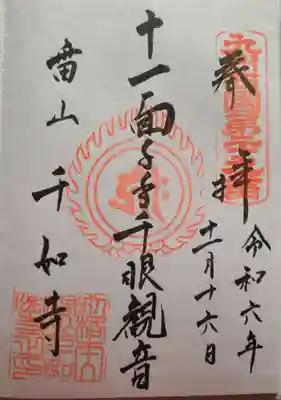 奉拝
令和六年
十一月十六日
十一面千手千眼観音
雷山 千如寺